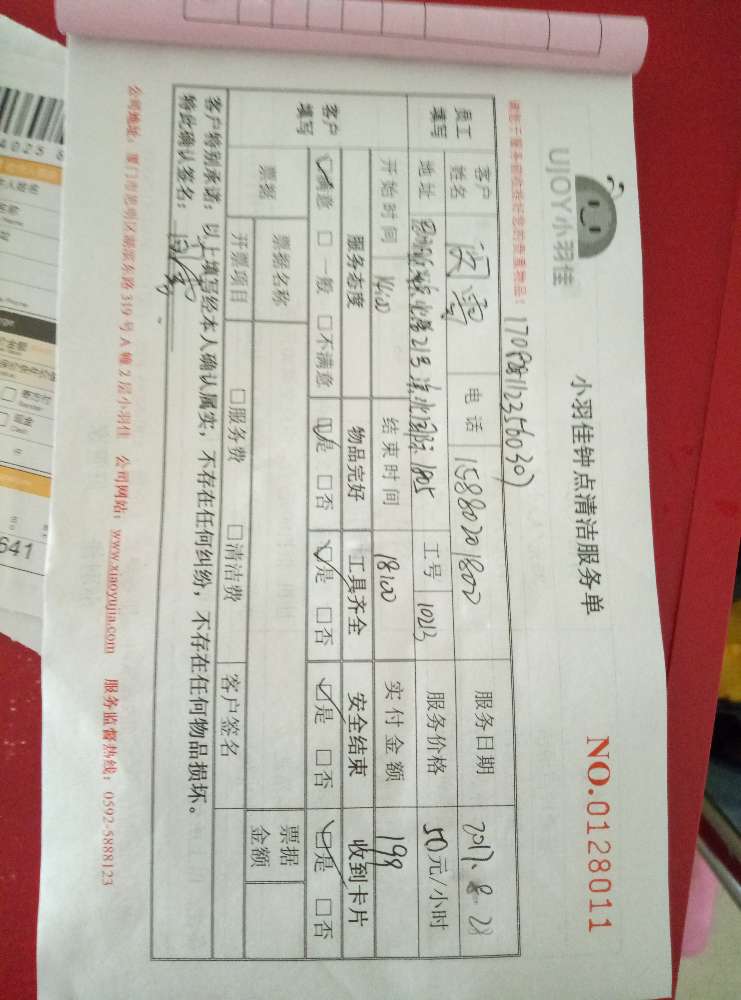 UJOY小羽佳
小羽佳钟点清洁服务单
NO.0128011
170828112356030)
员工填写
客户姓名 电话 15880201800 服务日期 2017.8.28
地址 21号 国际1805 工号 10213 服务价格 50元/小时
开始时间 14:00 结束时间 18:00 实付金额 199
客户填写
服务态度 物品完好 工具齐全 安全结束 收到卡片
☑满意 □一般 □不满意 ☑是 □否 ☑是 □否 ☑是 □否 ☑是 □否
票据 票据名称 票据金额
开票项目 □服务费 □清洁费 客户签名
客户特别承诺：以上填写经本人确认属实，不存在任何纠纷，不存在任何物品损坏。
特此确认签名：
公司地址：厦门市思明区湖滨东路319号A幢2层小羽佳 公司网站：www.xiaoyujia.com 服务监督热线：0592-5888123
641